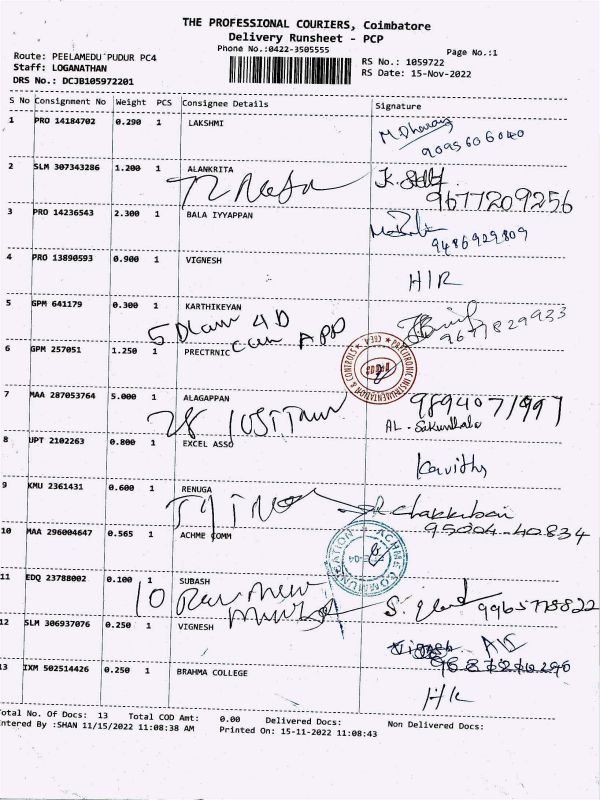 THE PROFESSIONAL COURIERS, Coimbatore
Delivery Runsheet - PCP
Phone No.:0422-3505555
Page No.:1
Route: PEELAMEDU PUDUR PC4
Staff: LOGANATHAN
DRS No.: DCJB105972201
RS No.: 1059722
RS Date: 15-Nov-2022
S No Consignment No Weight PCS Consignee Details Signature
1 PRO 14184702 0.290 1 LAKSHMI
9095606040
2 SLM 307343286 1.200 1 ALANKRITA
9677209256
3 PRO 14236543 2.300 1 BALA IYYAPPAN
9486929809
4 PRO 13890593 0.900 1 VIGNESH
H/R
5 GPM 641179 0.300 1 KARTHIKEYAN
9677829933
6 GPM 257051 1.250 1 PRECTRNIC
PRECITRONIC INSTRUMENTATION & CONTROLS
7 MAA 287053764 5.000 1 ALAGAPPAN
9894071997
AL. Sakunthala
8 UPT 2102263 0.800 1 EXCEL ASSO
Kavitha
9 KMU 2361431 0.600 1 RENUGA
95004 40834
10 MAA 296004647 0.565 1 ACHME COMM
ACHME COMMUNICATION
11 EDQ 23788002 0.100 1 SUBASH
12 SLM 306937076 0.250 1 VIGNESH
13 IXM 502514426 0.250 1 BRAHMA COLLEGE
H/R
Total No. Of Docs: 13 Total COD Amt: 0.00 Delivered Docs: Non Delivered Docs:
Entered By :SHAN 11/15/2022 11:08:38 AM Printed On: 15-11-2022 11:08:43